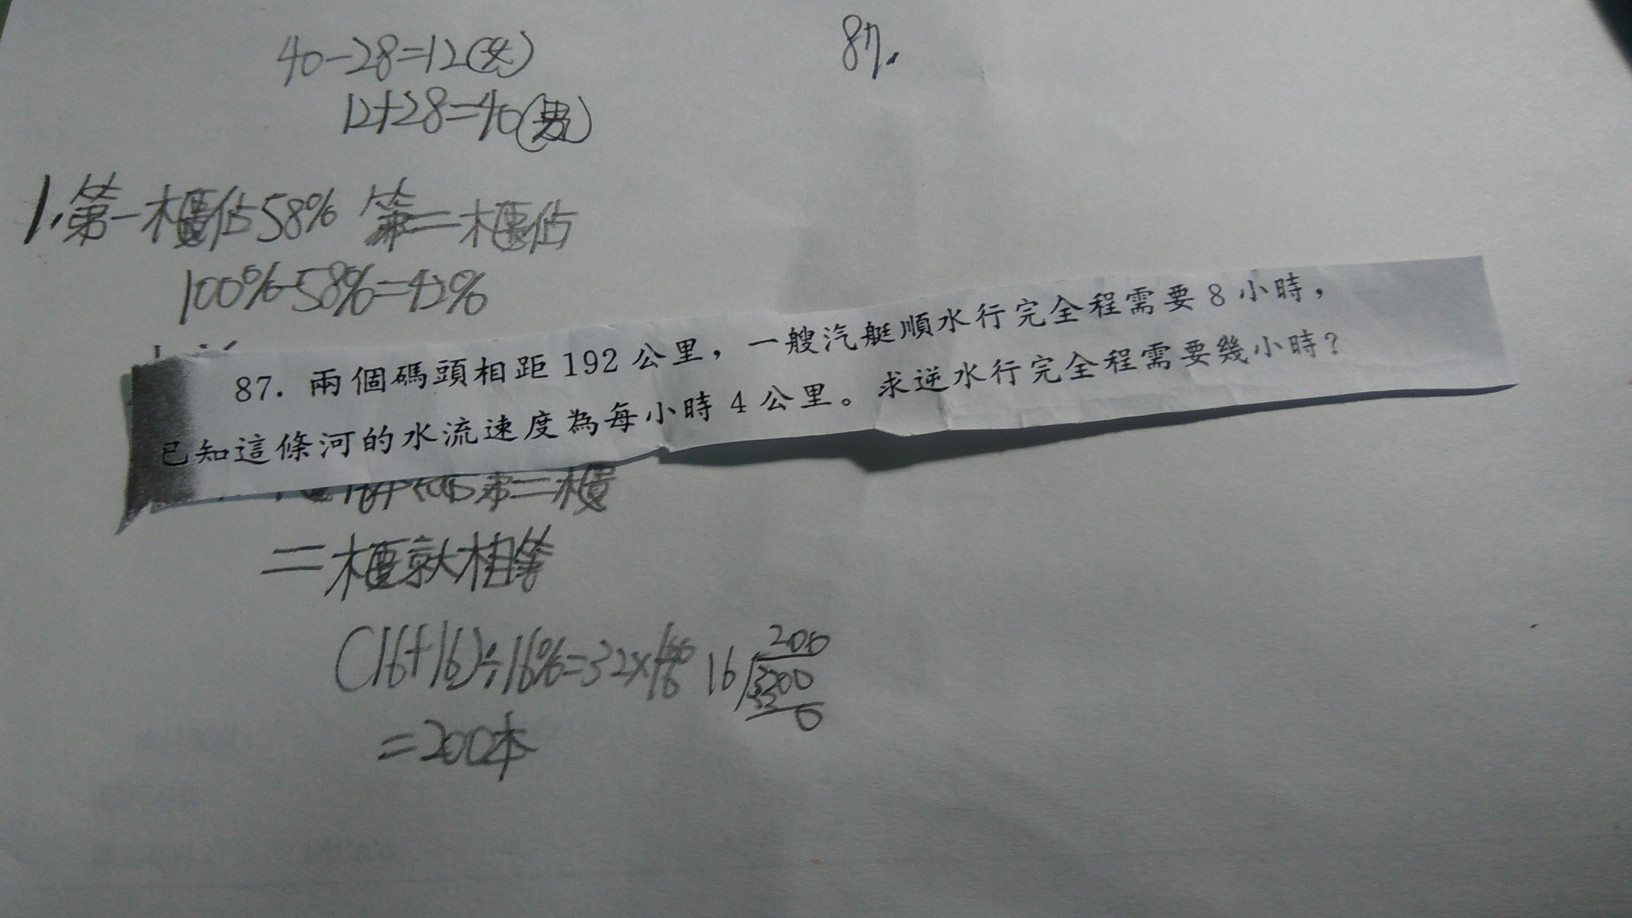 40-28=12(女)
12+28=40(男)
87.
1.第一櫃佔58% 第二櫃佔
100%-58%=42%
87. 兩個碼頭相距 192 公里，一艘汽艇順水行完全程需要 8 小時，
已知這條河的水流速度為每小時 4 公里。求逆水行完全程需要幾小時？
第二櫃
二櫃就相等
(16+16)÷16%=32×100/16
=200本
200
16 3200
0